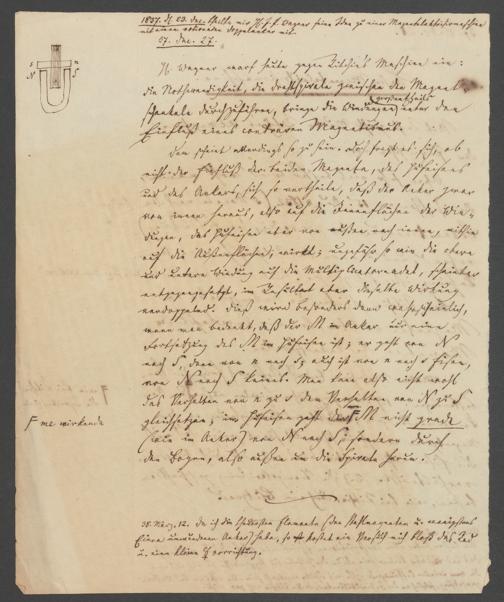 1837. d. 23. Dec. theilte mir H. J. F. Wagner seine Idee zu einer Magnetelektrisirmaschine
mit einem rotirenden Doppelanker mit.
37. Dec. 27.
H. Wagner warf heute gegen Maschine ein:
die Nothwendigkeit, die Drahtspirale zwischen den Magnet-
schenkeln durchzuführen, bringe die Windungen großentheils unter den
Einfluß eines conträren Magnetismus.
Dem scheint allerdings so zu sein. Doch fragt es sich, ob
nicht der Einfluß der beiden Magnete, des Hufeisens
und des Ankers, sich so vertheile, daß der Anker zwar
von innen heraus, also auf die Innenflächen der Win-
dungen, das Hufeisen aber von außen nach innen, mithin
auf die Außenflächen, wirkt; ungefähr so wie die obere
und untere Windung auf die Multiplicatornadel, scheinbar
entgegengesetzt, im Resultat aber dieselbe Wirkung
verdoppelnd. Dieß wird besonders dann wahrscheinlich,
wenn man bedenkt, daß der M im Anker nur eine
Fortsetzung des M im Hufeisen ist; er geht von N
nach S, dann von n nach s; auch ist von n nach s Eisen,
von N nach S keines. Man kann also nicht wohl
das Verhalten von n zu s dem Verhalten von N zu S
gleichsetzen; im Hufeisen geht der F M nicht grade
(wie im Anker) von N nach S, sondern durch
den Bogen, also außen um die Spirale herum.
F me wirkende
s n
N S
38. März. 12. Da ich die Elemente (den Stahlmagneten u. wenigstens
Einen umwundenen Anker) habe, so kostet ein Versuch mich bloß das Rad
u. eine kleine vorrichtung.